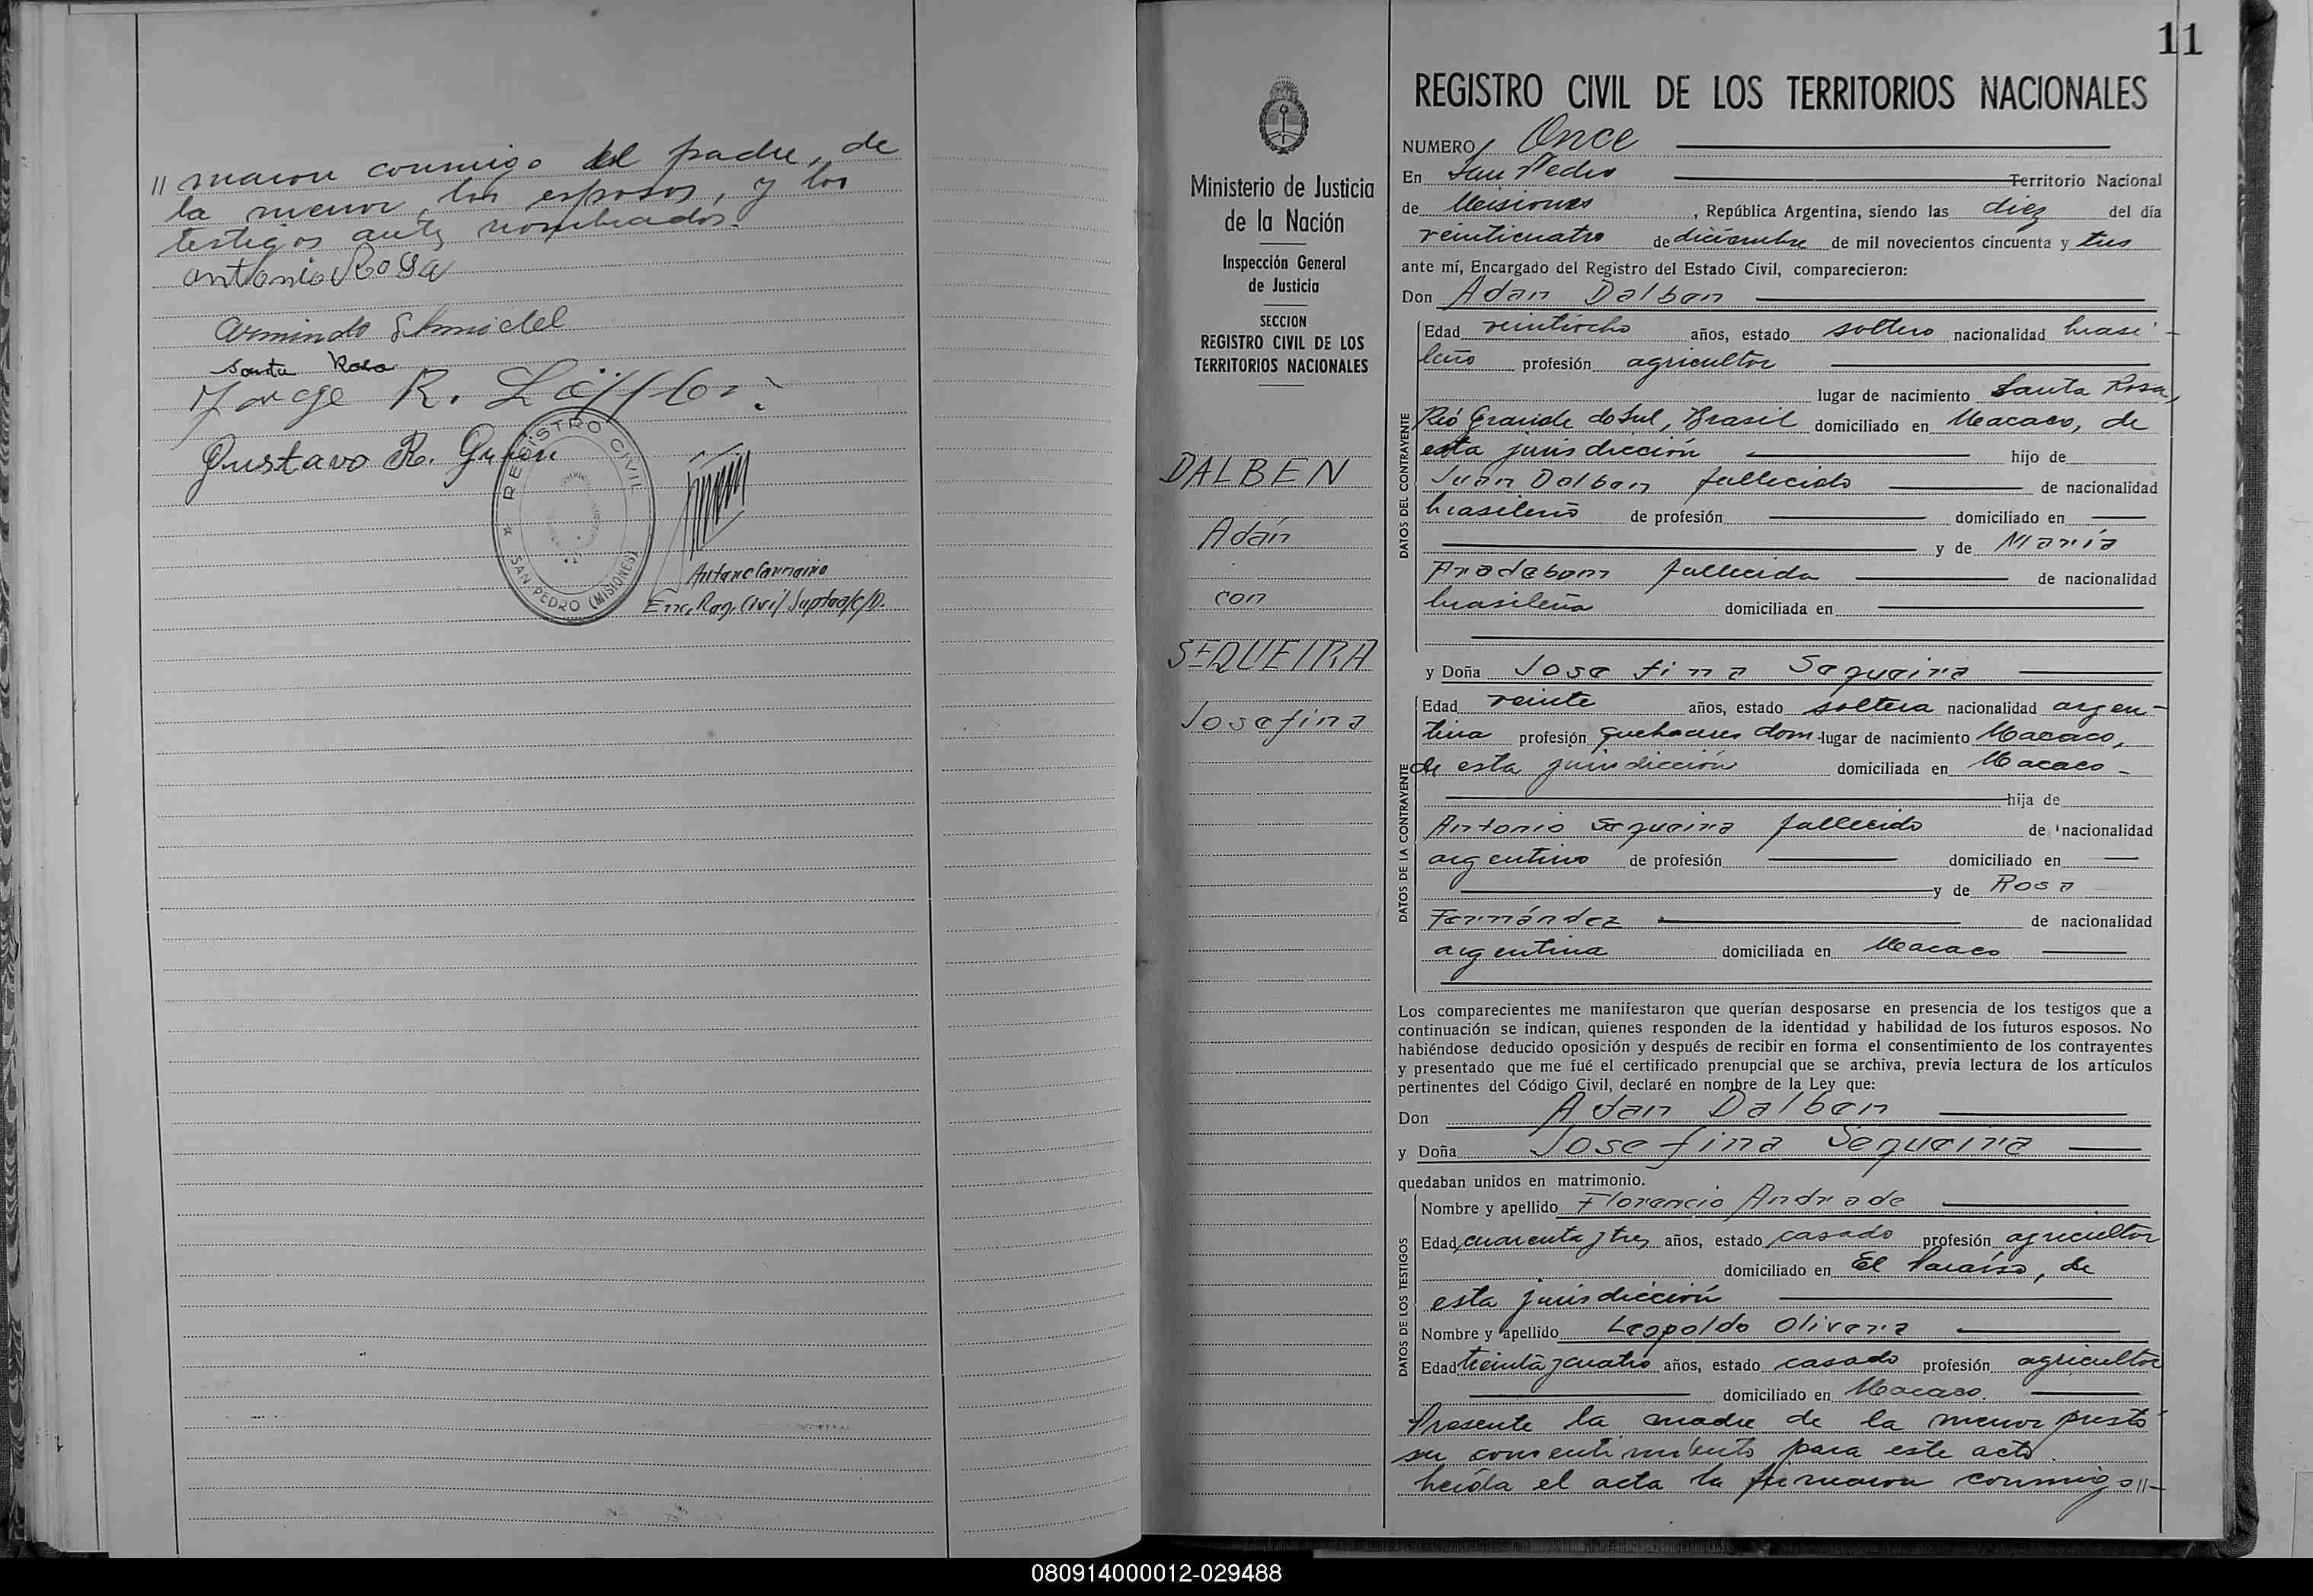 // maron conmigo el padre, de
la menor, los esposos, y los
testigos antes nombrados.
Antonio Rosa
Armindo Schmidel
Santa Rosa
Jorge R. Löffler
Gustavo R.
REGISTRO CIVIL
SAN PEDRO (MISIONES)
Enc. Reg. Civil Suptes/c/D.
11
Ministerio de Justicia
de la Nación
Inspección General
de Justicia
SECCION
REGISTRO CIVIL DE LOS
TERRITORIOS NACIONALES
DALBEN
Adán
con
SEQUEIRA
Josefina
REGISTRO CIVIL DE LOS TERRITORIOS NACIONALES
NUMERO Once
En San Pedro Territorio Nacional
de Misiones, República Argentina, siendo las diez del día
veinticuatro de diciembre de mil novecientos cincuenta y tres
ante mí, Encargado del Registro del Estado Civil, comparecieron:
Don Adan Dalben
DATOS DEL CONTRAYENTE
Edad veintiocho años, estado soltero nacionalidad brasi-
leño profesión agricultor
lugar de nacimiento Santa Rosa,
Rio Grande do Sul, Brasil domiciliado en Macaco, de
esta jurisdicción hijo de
Juan Dalben fallecido de nacionalidad
brasileño de profesión domiciliado en
y de María
Pradebom fallecida de nacionalidad
brasileña domiciliada en
y Doña Josefina Sequeira
DATOS DE LA CONTRAYENTE
Edad veinte años, estado soltera nacionalidad argen-
tina profesión quehaceres dom. lugar de nacimiento Macaco,
de esta jurisdicción domiciliada en Macaco -
hija de
Antonio Sequeira fallecido de nacionalidad
argentino de profesión domiciliado en
y de Rosa
Fernández de nacionalidad
argentina domiciliada en Macaco
Los comparecientes me manifestaron que querían desposarse en presencia de los testigos que a
continuación se indican, quienes responden de la identidad y habilidad de los futuros esposos. No
habiéndose deducido oposición y después de recibir en forma el consentimiento de los contrayentes
y presentado que me fué el certificado prenupcial que se archiva, previa lectura de los artículos
pertinentes del Código Civil, declaré en nombre de la Ley que:
Don Adan Dalben
y Doña Josefina Sequeira
quedaban unidos en matrimonio.
DATOS DE LOS TESTIGOS
Nombre y apellido Florencio Andrade
Edad cuarenta y tres años, estado casado profesión agricultor
domiciliado en El Paraíso, de
esta jurisdicción
Nombre y apellido Leopoldo Olivera
Edad treinta y cuatro años, estado casado profesión agricultor
domiciliado en Macaco.
Presente la madre de la menor prestó
su consentimiento para este acto.
Leída el acta la firmaron conmigo //-
080914000012-029488